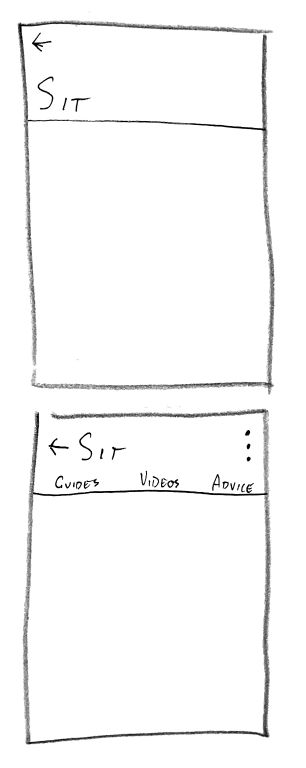 ←
SIT
← SIT
GUIDES VIDEOS ADVICE